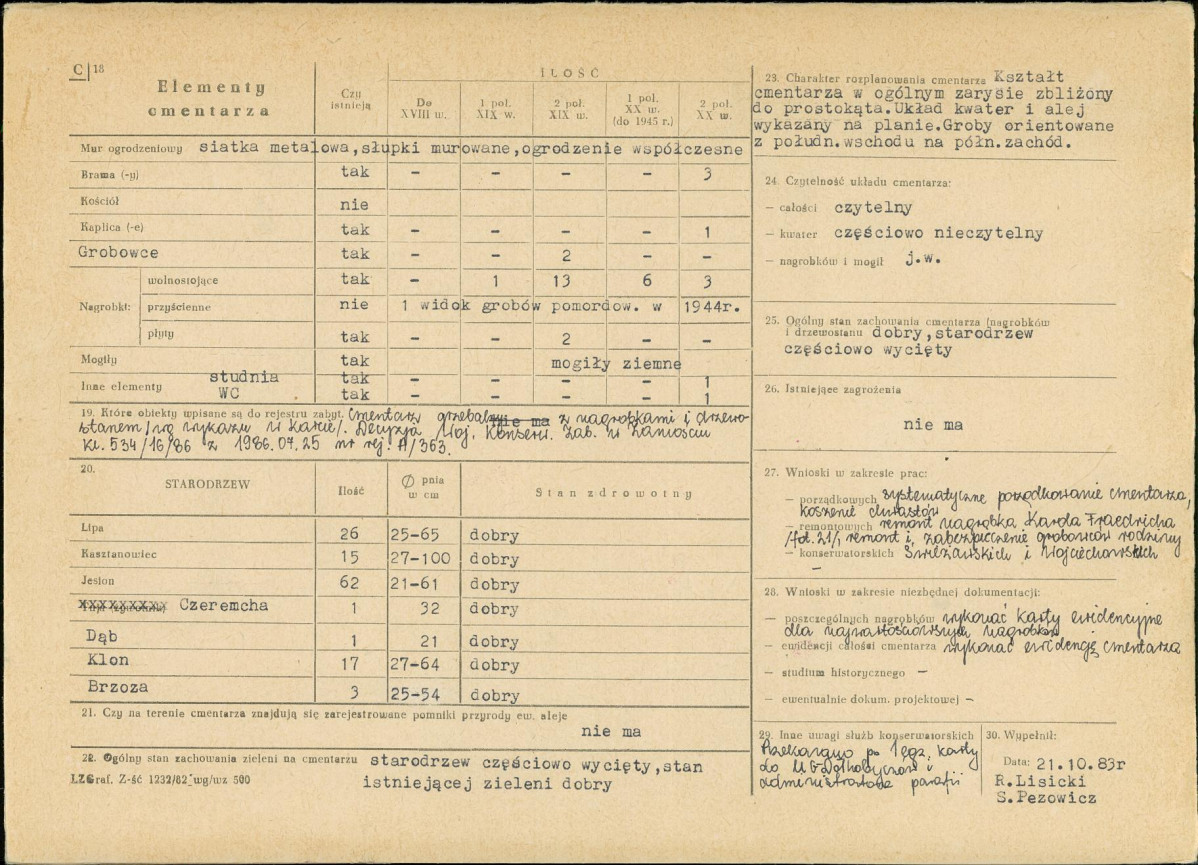 C|18
Elementy cmentarza
Czy istnieją
ILOŚĆ
Do XVIII w.
1 poł. XIX w.
2 poł. XIX w.
1 poł. XX w. (do 1945 r.)
2 poł. XX w.
Mur ogrodzeniowy siatka metalowa,słupki murowane,ogrodzenie współczesne
Brama (-y) tak – – – – 3
Kościół nie
Kaplica (-e) tak – – – – 1
Grobowce tak – – 2 – –
Nagrobki: wolnostojące tak – 1 13 6 3
przyścienne nie 1 widok grobów pomordow. w 1944r.
płyty tak – – 2 – –
Mogiły tak mogiły ziemne
Inne elementy studnia tak – – – – 1
WC tak – – – – 1
19. Które obiekty wpisane są do rejestru zabyt. Cmentarz grzebalny nie ma z nagrobkami i drzewo-
stanem /wg wykazu w karcie/. Decyzja Woj. Konserw. Zab. w Zamościu
Kl. 534/16/86 z 1986.07.25 nr rej. A/363.
20.
STARODRZEW
Ilość
Ø pnia w cm
Stan zdrowotny
Lipa 26 25–65 dobry
Kasztanowiec 15 27–100 dobry
Jesion 62 21–61 dobry
Czeremcha 1 32 dobry
Dąb 1 21 dobry
Klon 17 27–64 dobry
Brzoza 3 25–54 dobry
21. Czy na terenie cmentarza znajdują się zarejestrowane pomniki przyrody ew. aleje
nie ma
22. Ogólny stan zachowania zieleni na cmentarzu starodrzew częściowo wycięty,stan
istniejącej zieleni dobry
LZGraf. Z-ść 1232/82 wg/wz 500
23. Charakter rozplanowania cmentarza Kształt
cmentarza w ogólnym zarysie zbliżony
do prostokąta.Układ kwater i alej
wykazany na planie.Groby orientowane
z połudn.wschodu na półn.zachód.
24. Czytelność układu cmentarza:
– całości czytelny
– kwater częściowo nieczytelny
– nagrobków i mogił j.w.
25. Ogólny stan zachowania cmentarza (nagrobków
i drzewostanu dobry,starodrzew
częściowo wycięty
26. Istniejące zagrożenia
nie ma
27. Wnioski w zakresie prac:
– porządkowych systematyczne porządkowanie cmentarza,
koszenie chwastów
– remontowych remont nagrobka Karola Fraedricha
/fot. 21/, remont i zabezpieczenie grobowców rodziny
– konserwatorskich Świeżawskich i Wojciechowskich
–
28. Wnioski w zakresie niezbędnej dokumentacji:
– poszczególnych nagrobków wykonać karty ewidencyjne
dla najwartościowszych nagrobków
– ewidencji całości cmentarza wykonać ewidencję cmentarza
– studium historycznego –
– ewentualnie dokum. projektowej –
29. Inne uwagi służb konserwatorskich
Przekazano po 1 egz. karty
do UG Dołhobyczów i
administratora parafii
30. Wypełnił:
Data: 21.10.83r
R.Lisicki
S.Pezowicz